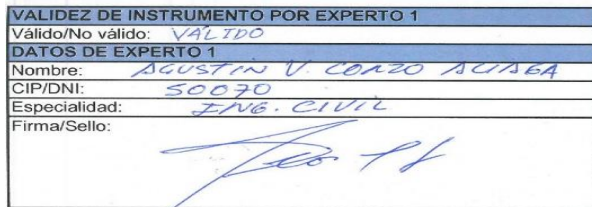 VALIDEZ DE INSTRUMENTO POR EXPERTO 1
Válido/No válido: VÁLIDO
DATOS DE EXPERTO 1
Nombre: AGUSTIN V. CORZO ALIAGA
CIP/DNI: 50070
Especialidad: ING. CIVIL
Firma/Sello: